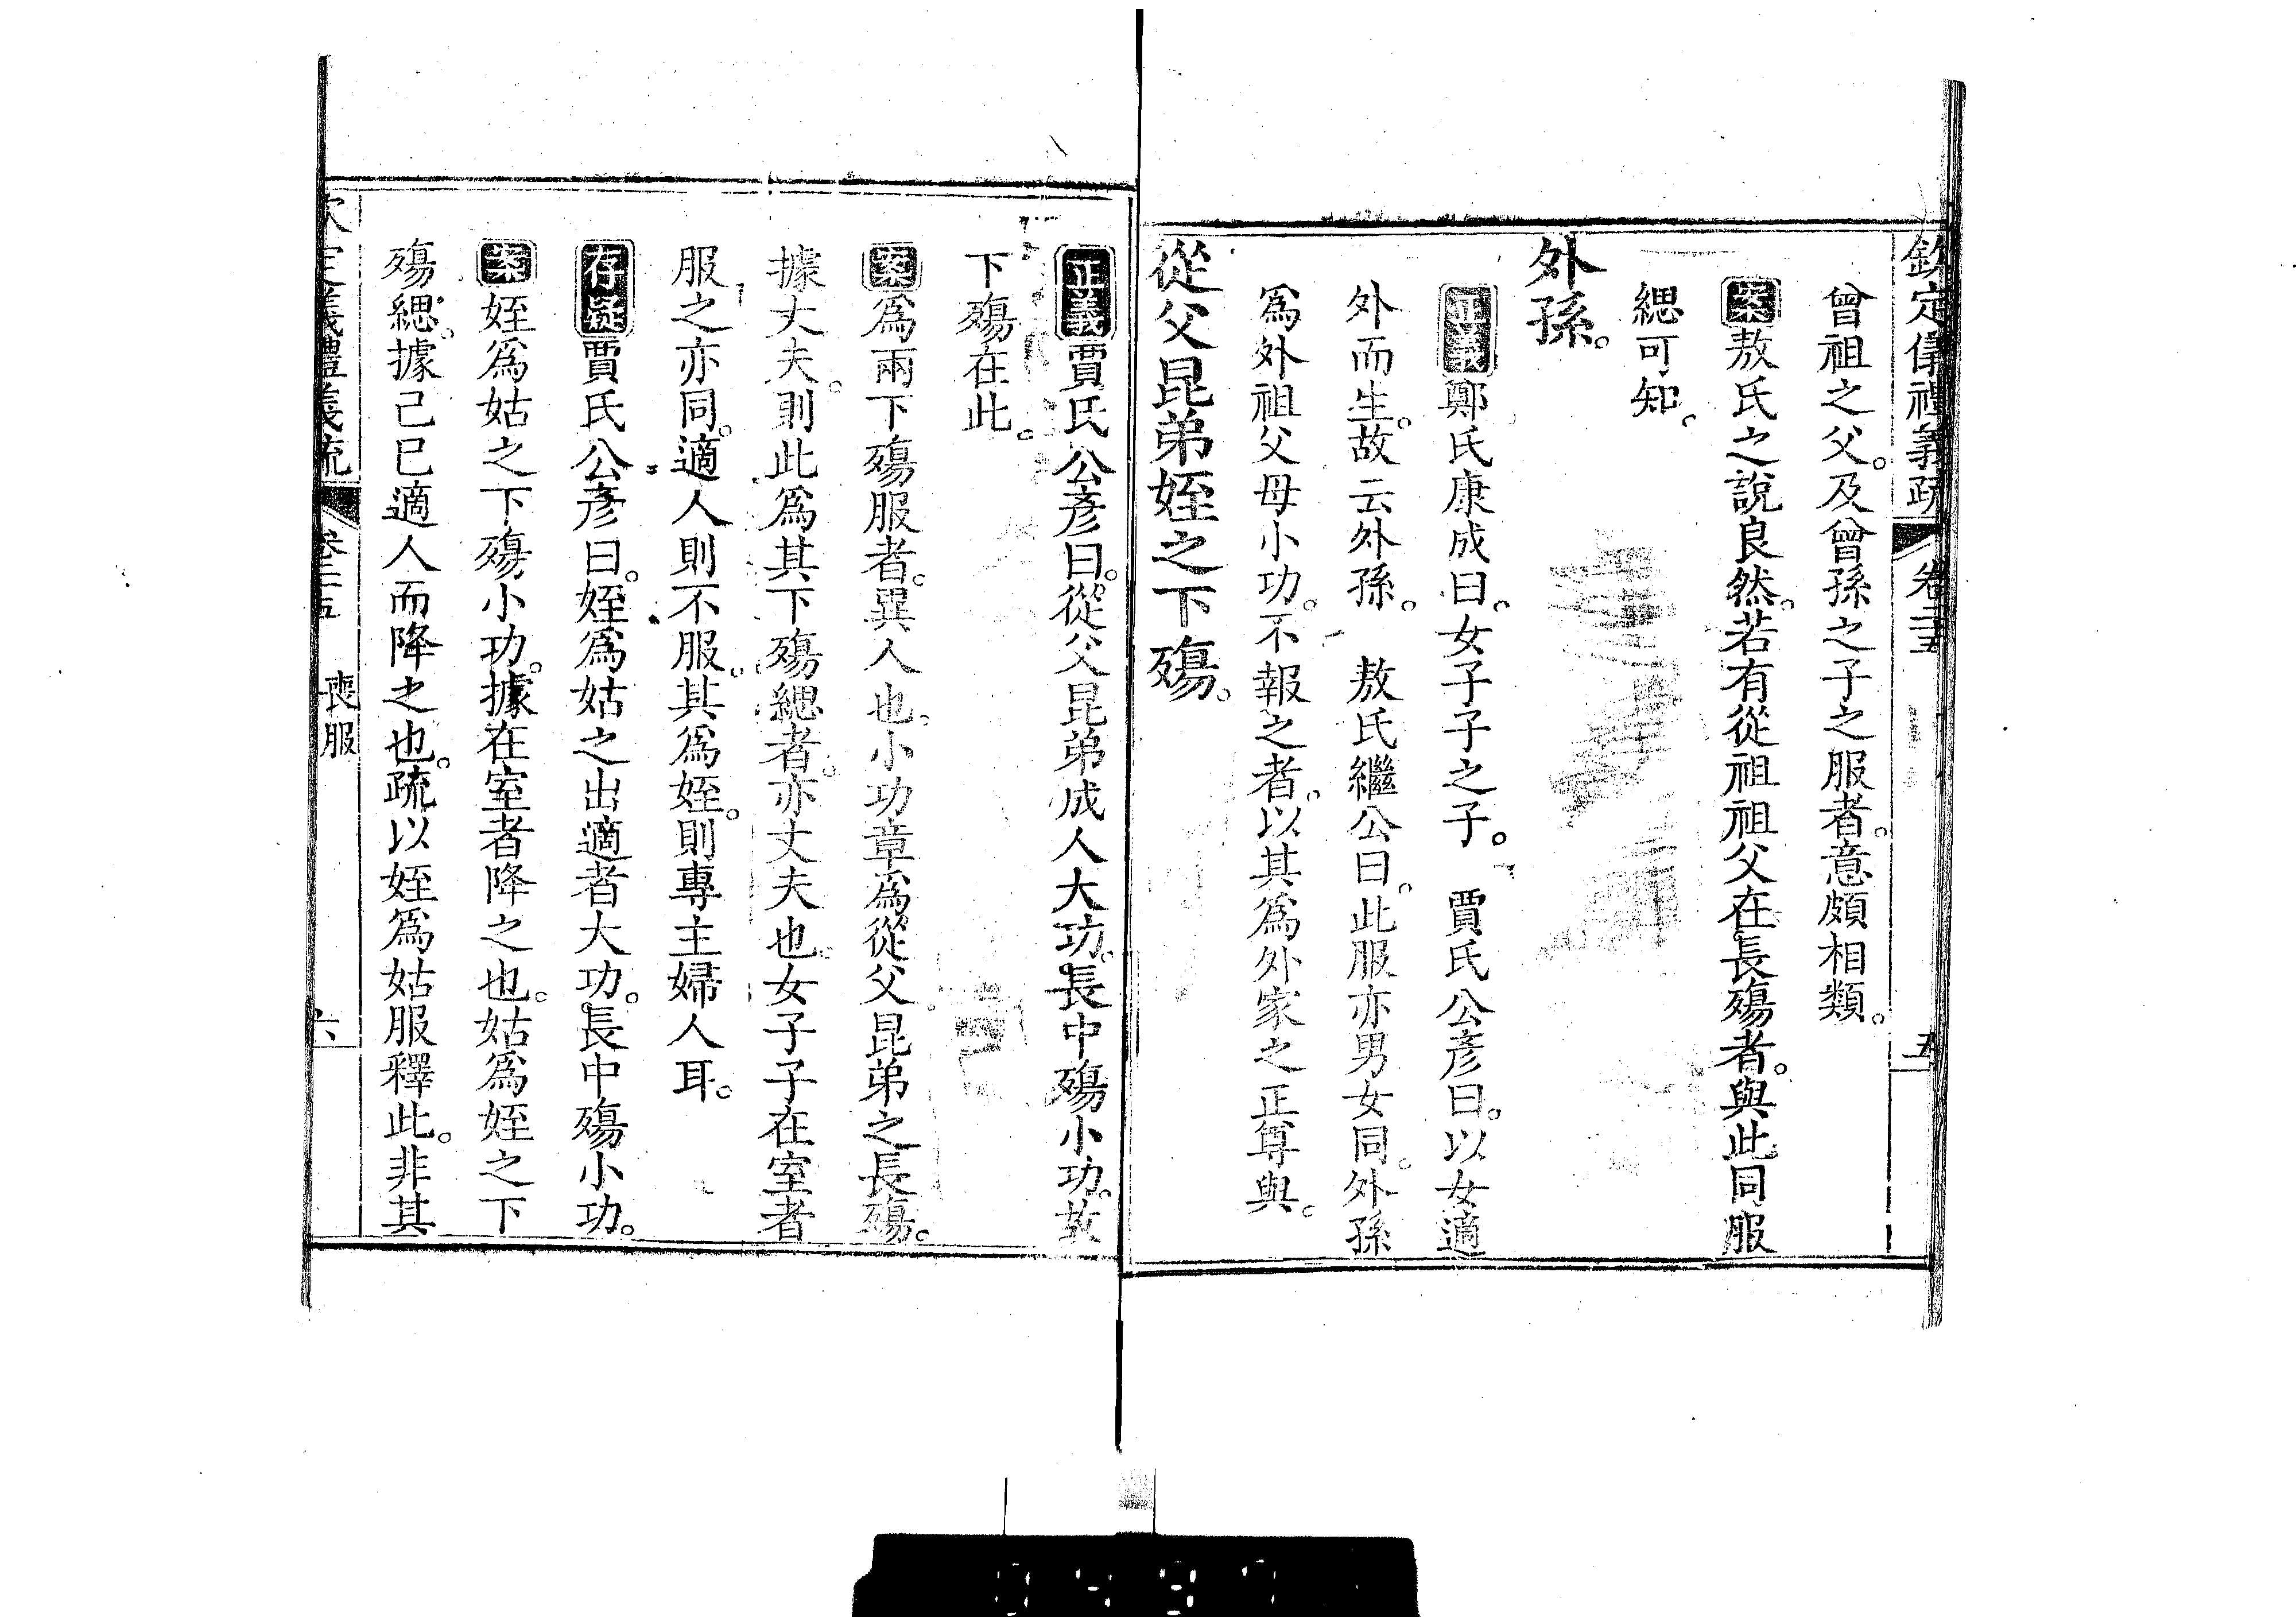 欽定儀禮義疏 卷二十五 五
曾祖之父。及曾孫之子之服者。意頗相類。
案敖氏之說良然。若有從祖祖父在長殤者。與此同服
緦可知。
外孫。
正義鄭氏康成曰。女子子之子。 賈氏公彥曰。以女適
外而生。故云外孫。 敖氏繼公曰。此服亦男女同。外孫
爲外祖父母小功。不報之者。以其爲外家之正尊與。
從父昆弟姪之下殤。
正義賈氏公彥曰。從父昆弟成人大功。長中殤小功。故
下殤在此。
案爲兩下殤服者。異人也。小功章爲從父昆弟之長殤。
據丈夫。則此爲其下殤緦者。亦丈夫也。女子子在室者
服之亦同。適人則不服。其爲姪。則專主婦人耳。
存疑賈氏公彥曰。姪爲姑之出適者大功。長中殤小功。
案姪爲姑之下殤小功。據在室者降之也。姑爲姪之下
殤緦。據己已適人而降之也。疏以姪爲姑服釋此。非其
欽定儀禮義疏 卷二十五 喪服 六